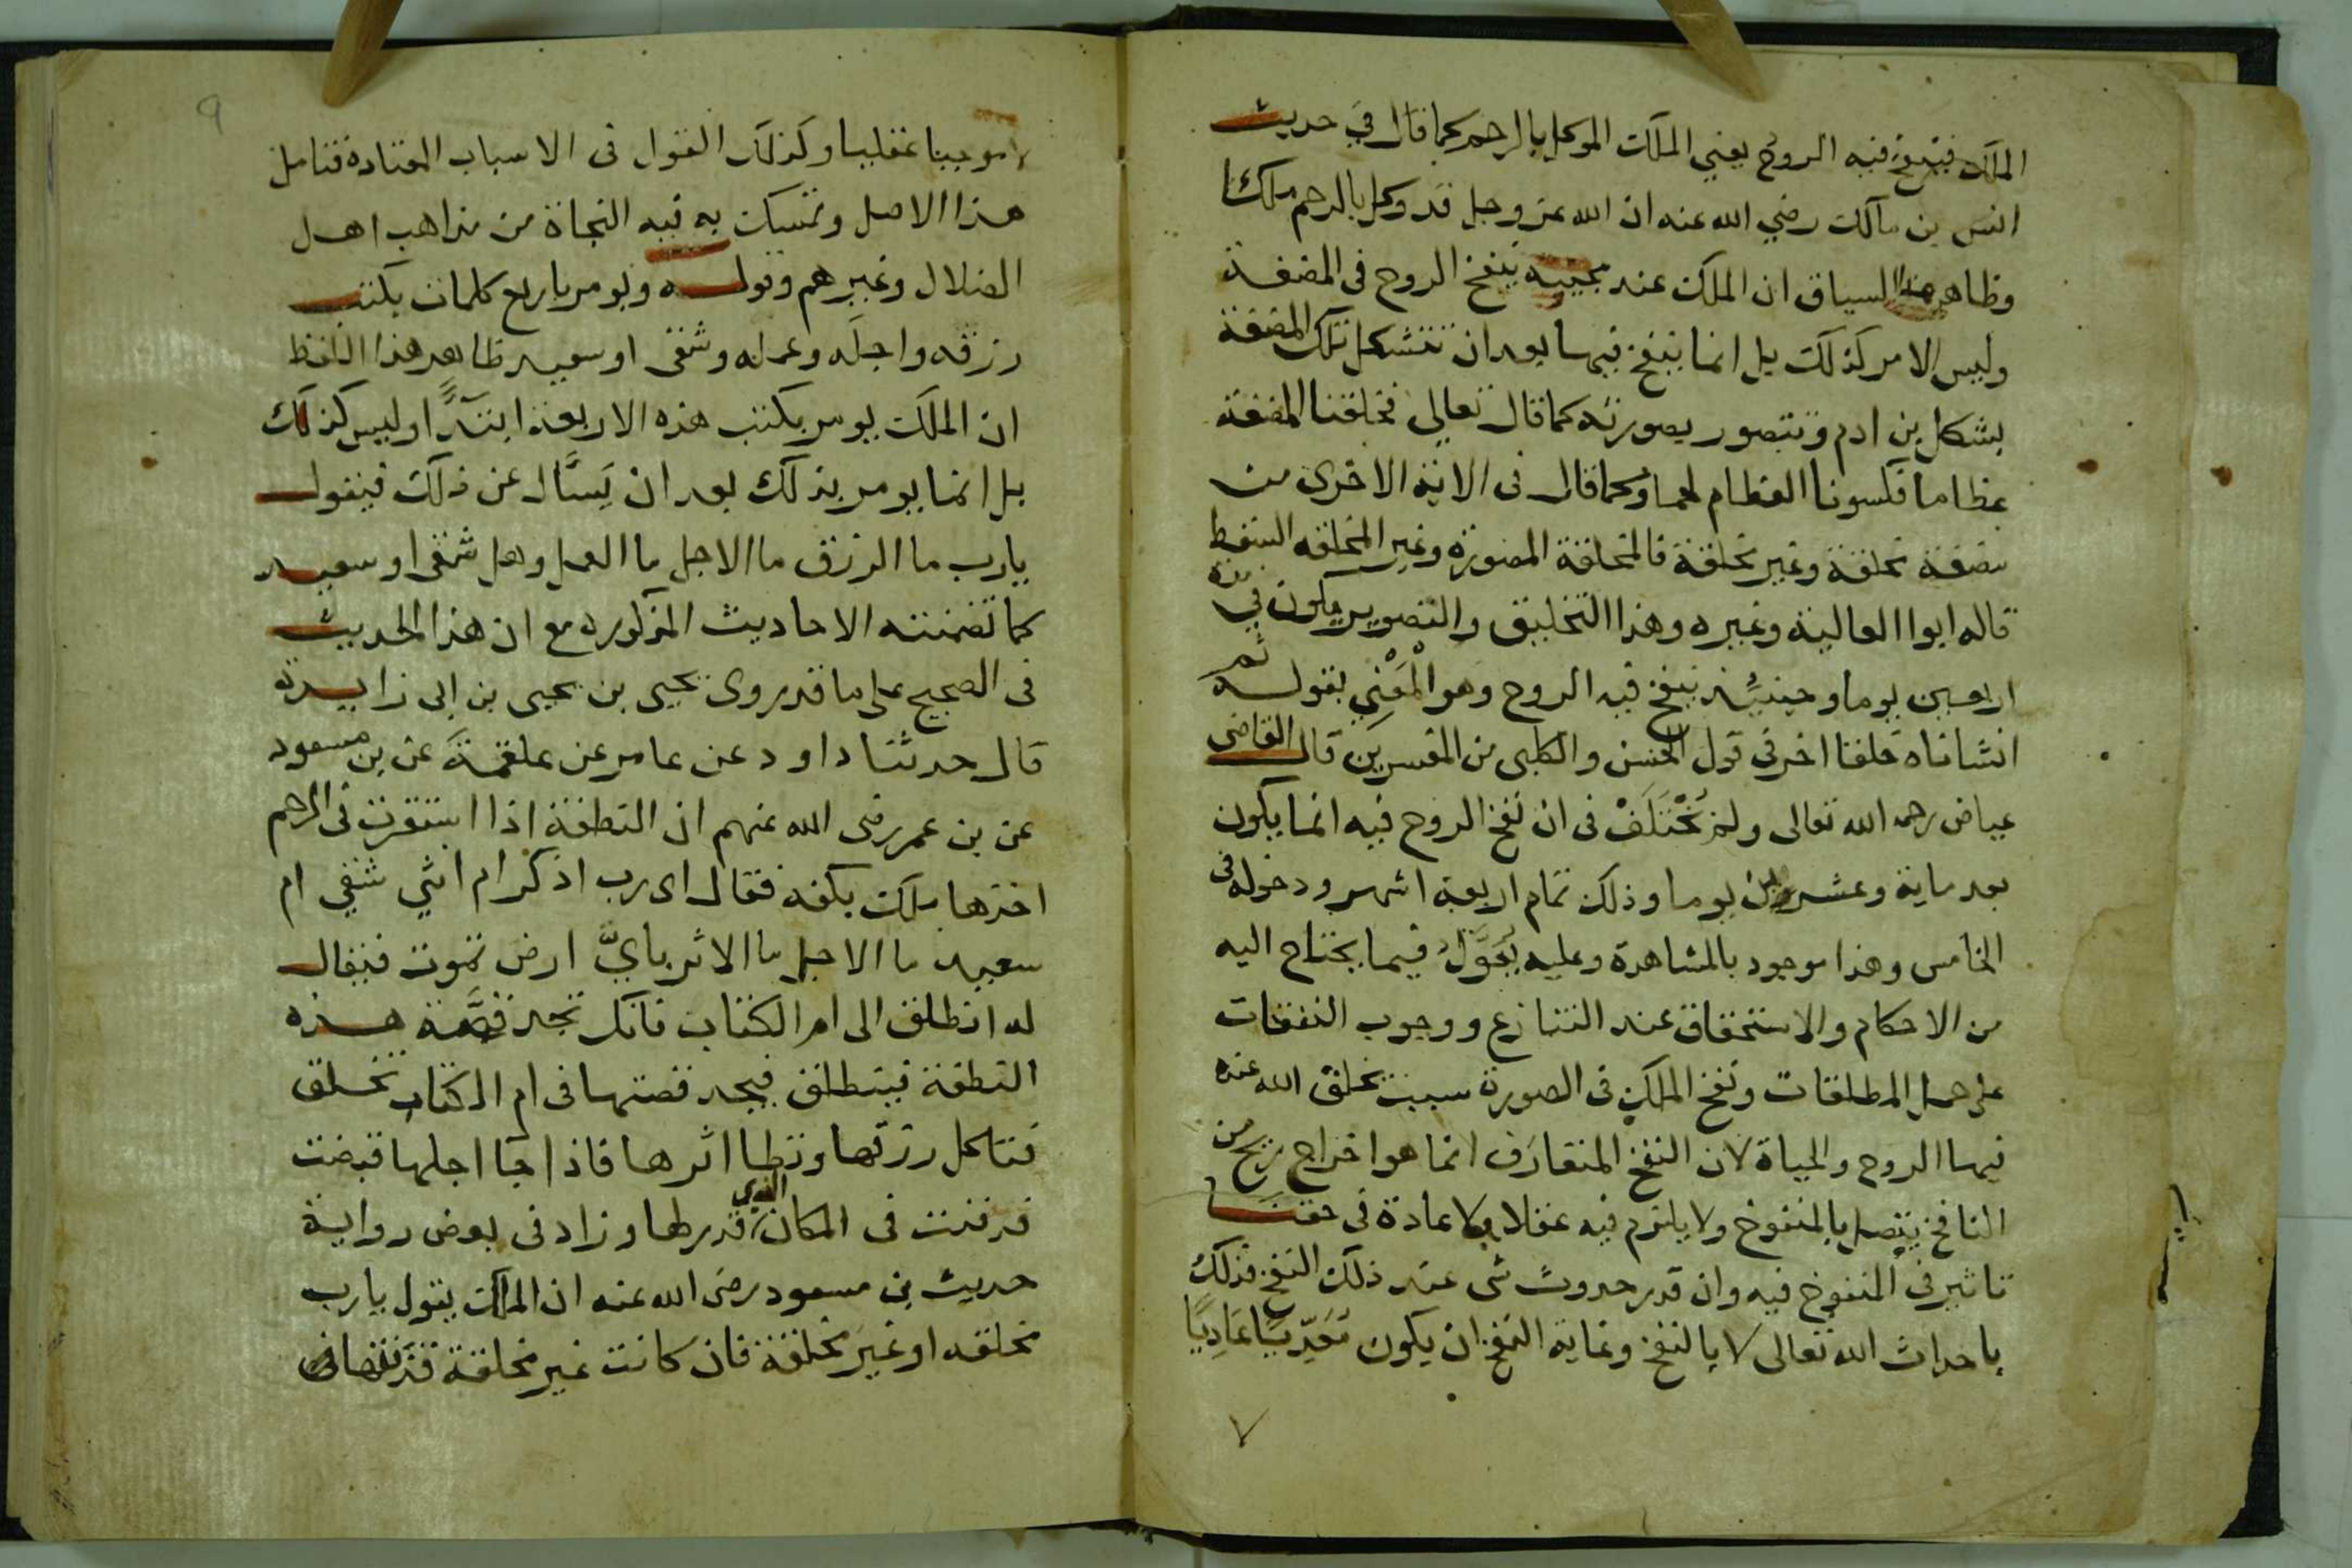 الملك فينفخ فيه الروح يعني الملك الموكل بالرحم كما قال في حديث
انس بن مالك رضي الله عنه ان الله عز وجل قد وكل بالرحم ملكا
وظاهر هذا السياق ان الملك عند مجيبه ينفخ الروح في المضغة
وليس الامر كذلك بل انما ينفخ فيها بعد ان تتشكل تلك المضغة
بشكل بن ادم وتتصور بصورته كما قال تعالى فخلقنا المضغة
عظاما فكسونا العظام لحما وكما قال في الاية الاخرى من
مضغة مخلقة وغير مخلقة فالمخلقة المصورة وغير المخلقه السقط
قاله ابوا العالية وغيره وهذا التخليق والتصوير يكون في مدة
اربعين يوما وحينيذ ينفخ فيه الروح وهو المعني بقوله ثم
انشاناه خلقا اخر في قول الحسن والكلبي من المفسرين قال القاضي
عياض رحمه الله تعالى ولم يختلف في ان نفخ الروح فيه انما يكون
بعد ماية وعشرين يوما وذلك تمام اربعة اشهر ودخوله في
الخامس وهذا موجود بالمشاهدة وعليه يعول فيما يحتاج اليه
من الاحكام والاستحقاق عند التنازع ووجوب النفقات
على حمل المطلقات ونفخ الملك في الصورة سبب يخلق الله عنده
فيها الروح والحياة لان النفخ المتعارف انما هو اخراج ريح من
النافخ يتصل بالمنفوخ ولا يلزم فيه عقلا ولا عادة في حقنا
تاثير في المنفوخ فيه وان قدر حدوث شى عند ذلك النفخ فذلك
باحداث الله تعالى لا بالنفخ وغاية النفخ ان يكون عاديا
٧
٩
لا موجبا عقليا وكذلك القول في الاسباب المعتادة فتامل
هذا الاصل وتمسك به فيه النجاة من مذاهب اهل
الضلال وغيرهم وقوله ويومر باربع كلمات بكتب
رزقه واجله وعمله وشقى او سعيد ظاهر هذا اللفظ
ان الملك يومر بكتب هذه الاربعة ابتداً وليس كذلك
بل انما يومر بذلك بعد ان يسال عن ذلك فيقول
يارب ما الرزق ما الاجل ما العمل وهل شقى او سعيد
كما تضمنته الاحاديث المذكوره مع ان هذا الحديث
في الصحيح على ما قد روى يحيى بن يحيى بن ابى زايدة
قال حدثنا داود عن عامر عن علقمة عن بن مسعود
عن بن عمر رضى الله عنهم ان النطفة اذا استقرت في الرحم
اخذها ملك بكفه فقال اى رب اذكر ام انثي شقي ام
سعيد ما الاجل ما الاثر باي ارض تموت فيقال
له انطلق الى ام الكتاب فانك تجد قصة هذه
النطفة فينطلق فيجد قصتها في ام الكتاب تخلق
فتاكل رزقها وتطا اثرها فاذا جا اجلها قبضت
فدفنت في المكان الذي قدر لها وزاد في بعض رواية
حديث بن مسعود رضى الله عنه ان الملك يقول يارب
مخلقه او غير مخلقة فان كانت غير مخلقة